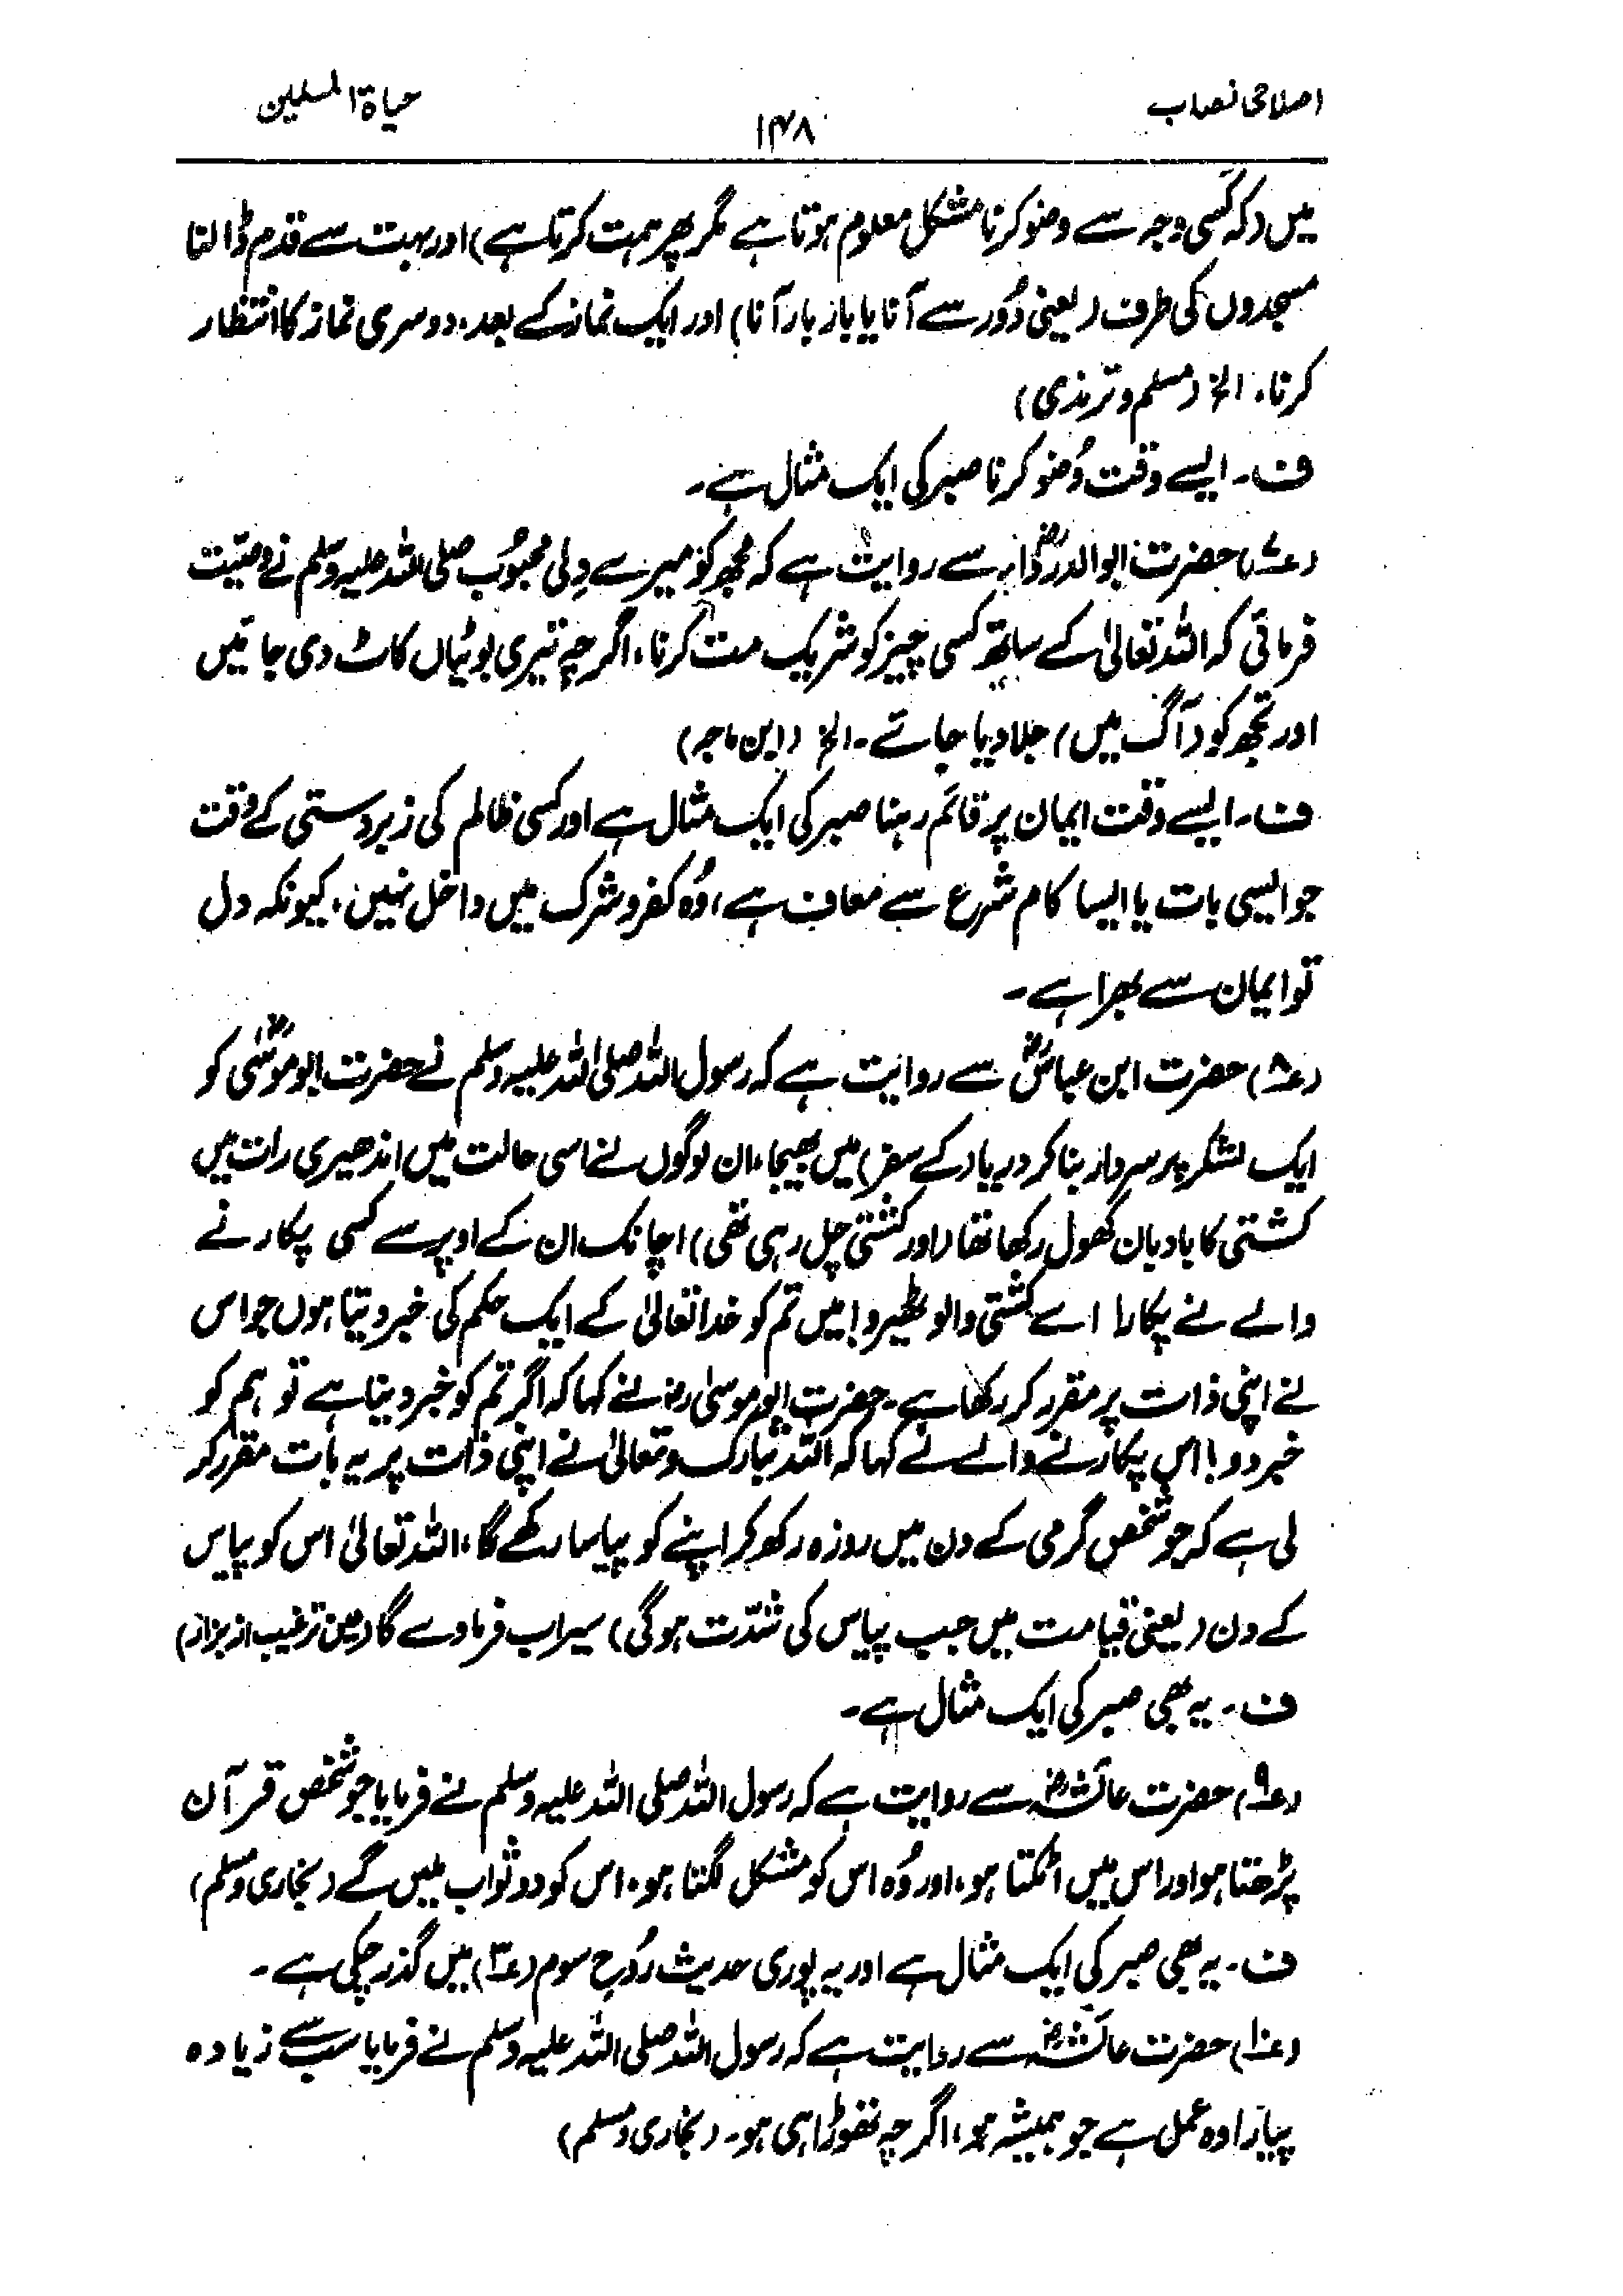 اصلاحی نصاب
۱۴۸
حیاۃ المسلمین
میں (کہ کسی وجہ سے وضو کرنا مشکل معلوم ہوتا ہے مگر پھر ہمت کرتا ہے) اور بہت سے قدم ڈالنا
مسجدوں کی طرف (یعنی دُور سے آنا یا بار بار آنا) اور ایک نماز کے بعد، دوسری نماز کا انتظار
کرنا، الخ (مسلم و ترمذی)
ف۔ ایسے وقت وُضو کرنا صبر کی ایک مثال ہے۔
(۷) حضرت ابوالدرداءؓ سے روایت ہے کہ مجھ کو میرے دِلی محبُوب صلی اللہ علیہ وسلم نے وصیّت
فرمائی کہ اللہ تعالیٰ کے ساتھ کسی چیز کو شریک مت کرنا، اگرچہ تیری بوٹیاں کاٹ دی جائیں
اور تجھ کو (آگ میں) جلا دیا جائے۔ الخ (ابن ماجہ)
ف۔ ایسے وقت ایمان پر قائم رہنا صبر کی ایک مثال ہے اور کسی ظالم کی زبردستی کے وقت
جو ایسی بات یا ایسا کام شرع سے معاف ہے، وُہ کفر و شرک میں داخل نہیں، کیونکہ دل
تو ایمان سے بھرا ہے۔
(۸) حضرت ابن عباسؓ سے روایت ہے کہ رسول اللہ صلی اللہ علیہ وسلم نے حضرت ابو موسٰیؓ کو
ایک لشکر پر سردار بنا کر دریا (کے سفر) میں بھیجا، ان لوگوں نے اسی حالت میں اندھیری رات میں
کشتی کا بادبان کھول رکھا تھا (اور کشتی چل رہی تھی) اچانک ان کے اوپر سے کسی پکارنے
والے نے پکارا اے کشتی والو ٹھیرو! میں تم کو خدا تعالیٰ کے ایک حکم کی خبر دیتا ہوں جو اس
نے اپنی ذات پر مقرر کر رکھا ہے۔ حضرت ابو موسیٰ رض نے کہا کہ اگر تم کو خبر دینا ہے تو ہم کو
خبر دو! اس پکارنے والے نے کہا کہ اللہ تبارک و تعالیٰ نے اپنی ذات پر یہ بات مقرر کر
لی ہے کہ جو شخص گرمی کے دن میں روزہ رکھ کر اپنے کو پیاسا رکھے گا، اللہ تعالیٰ اس کو پیاس
کے دن (یعنی قیامت میں جب پیاس کی شدّت ہوگی) سیراب فرما دے گا (عین ترغیب از بزاز)
ف۔ یہ بھی صبر کی ایک مثال ہے۔
(۹) حضرت عائشہؓ سے روایت ہے کہ رسول اللہ صلی اللہ علیہ وسلم نے فرمایا جو شخص قرآن
پڑھتا ہو اور اس میں اٹکتا ہو، اور وُہ اس کو مشکل لگتا ہو، اس کو دو ثواب ملیں گے (بخاری و مسلم)
ف۔ یہ بھی صبر کی ایک مثال ہے اور یہ پوری حدیث رُوح سوم (۳) میں گذر چکی ہے۔
(۱۰) حضرت عائشہؓ سے روایت ہے کہ رسول اللہ صلی اللہ علیہ وسلم نے فرمایا سب سے زیادہ
پیارا وہ عمل ہے جو ہمیشہ ہو، اگرچہ تھوڑا ہی ہو۔ (بخاری و مسلم)